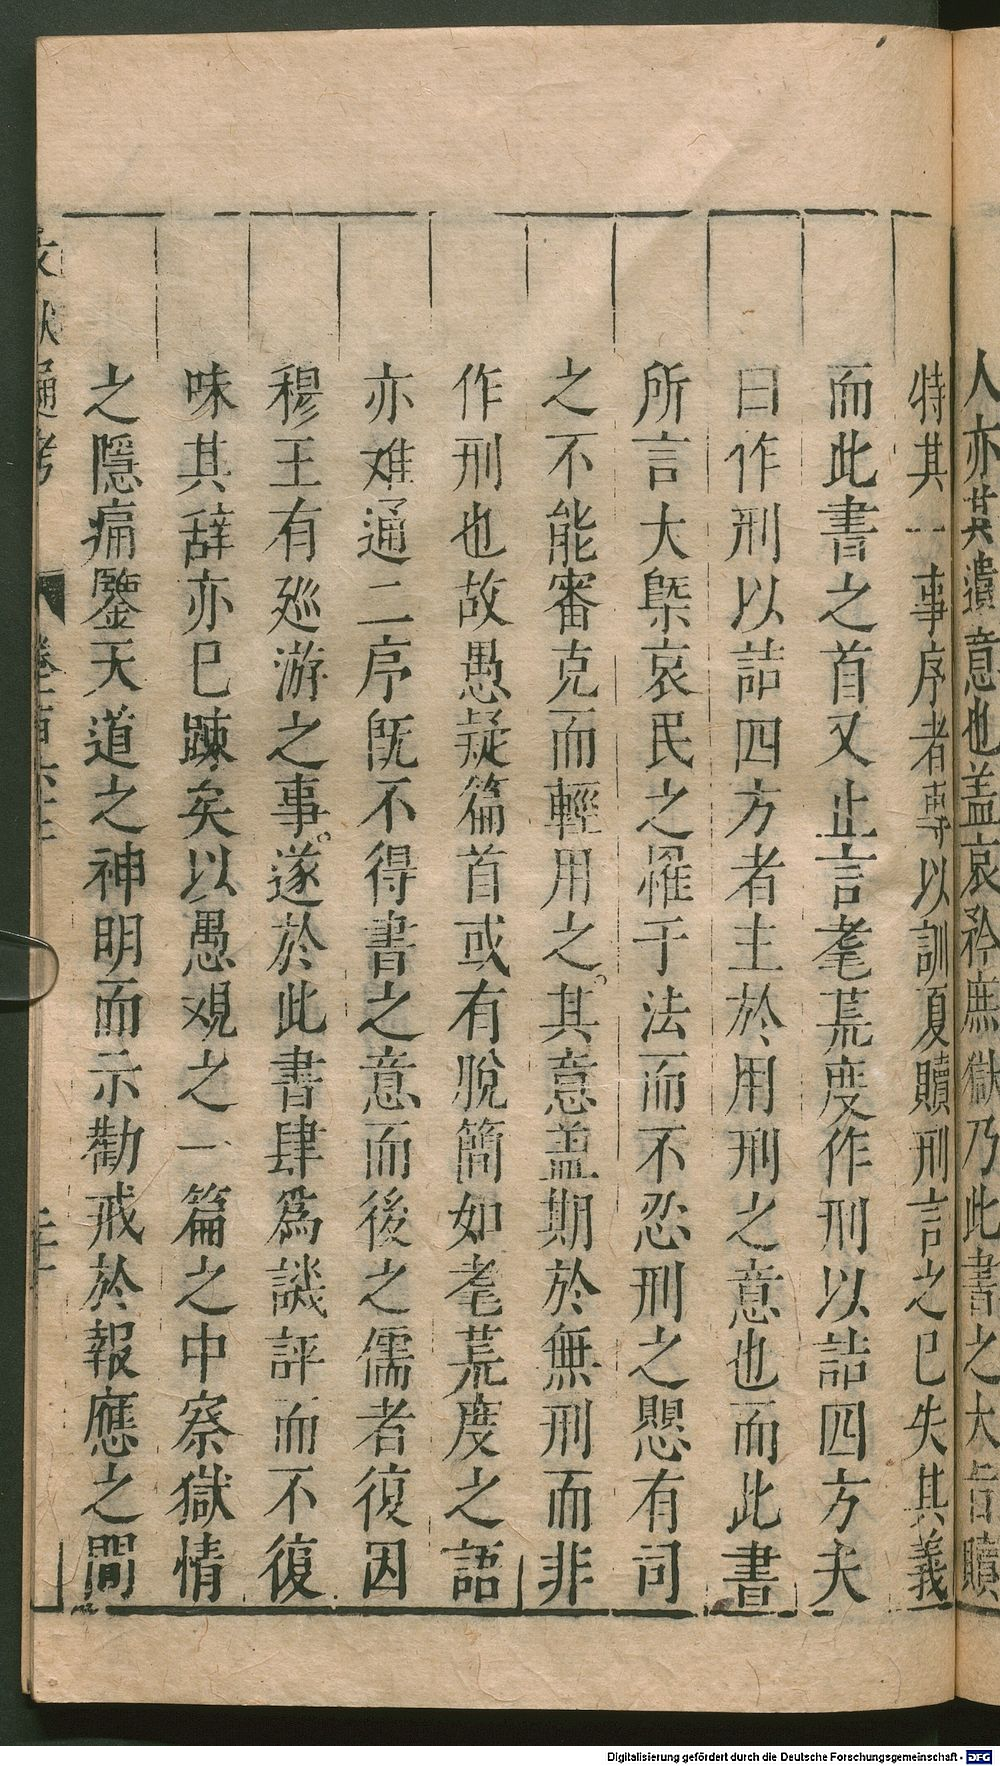 人亦其遺意也盖哀矜庶獄乃此書之大旨贖
特其一事序者專以訓夏贖刑言之已失其義
而此書之首又止言耄荒度作刑以詰四方夫
曰作刑以詰四方者主於用刑之意也而此書
所言大槩哀民之罹于法而不忍刑之愳有司
之不能審克而輕用之。其意盖期於無刑而非
作刑也故愚疑篇首或有脫簡如耄荒度之語
亦难通二序既不得書之意而後之儒者復因
穆王有廵游之事。遂於此書肆為譏評而不復
味其辭亦已踈矣以愚观之一篇之中察獄情
之隱痛鑒天道之神明而示勸戒於報應之間
文獻通考
卷一百六十二
Digitalisierung gefördert durch die Deutsche Forschungsgemeinschaft - DFG